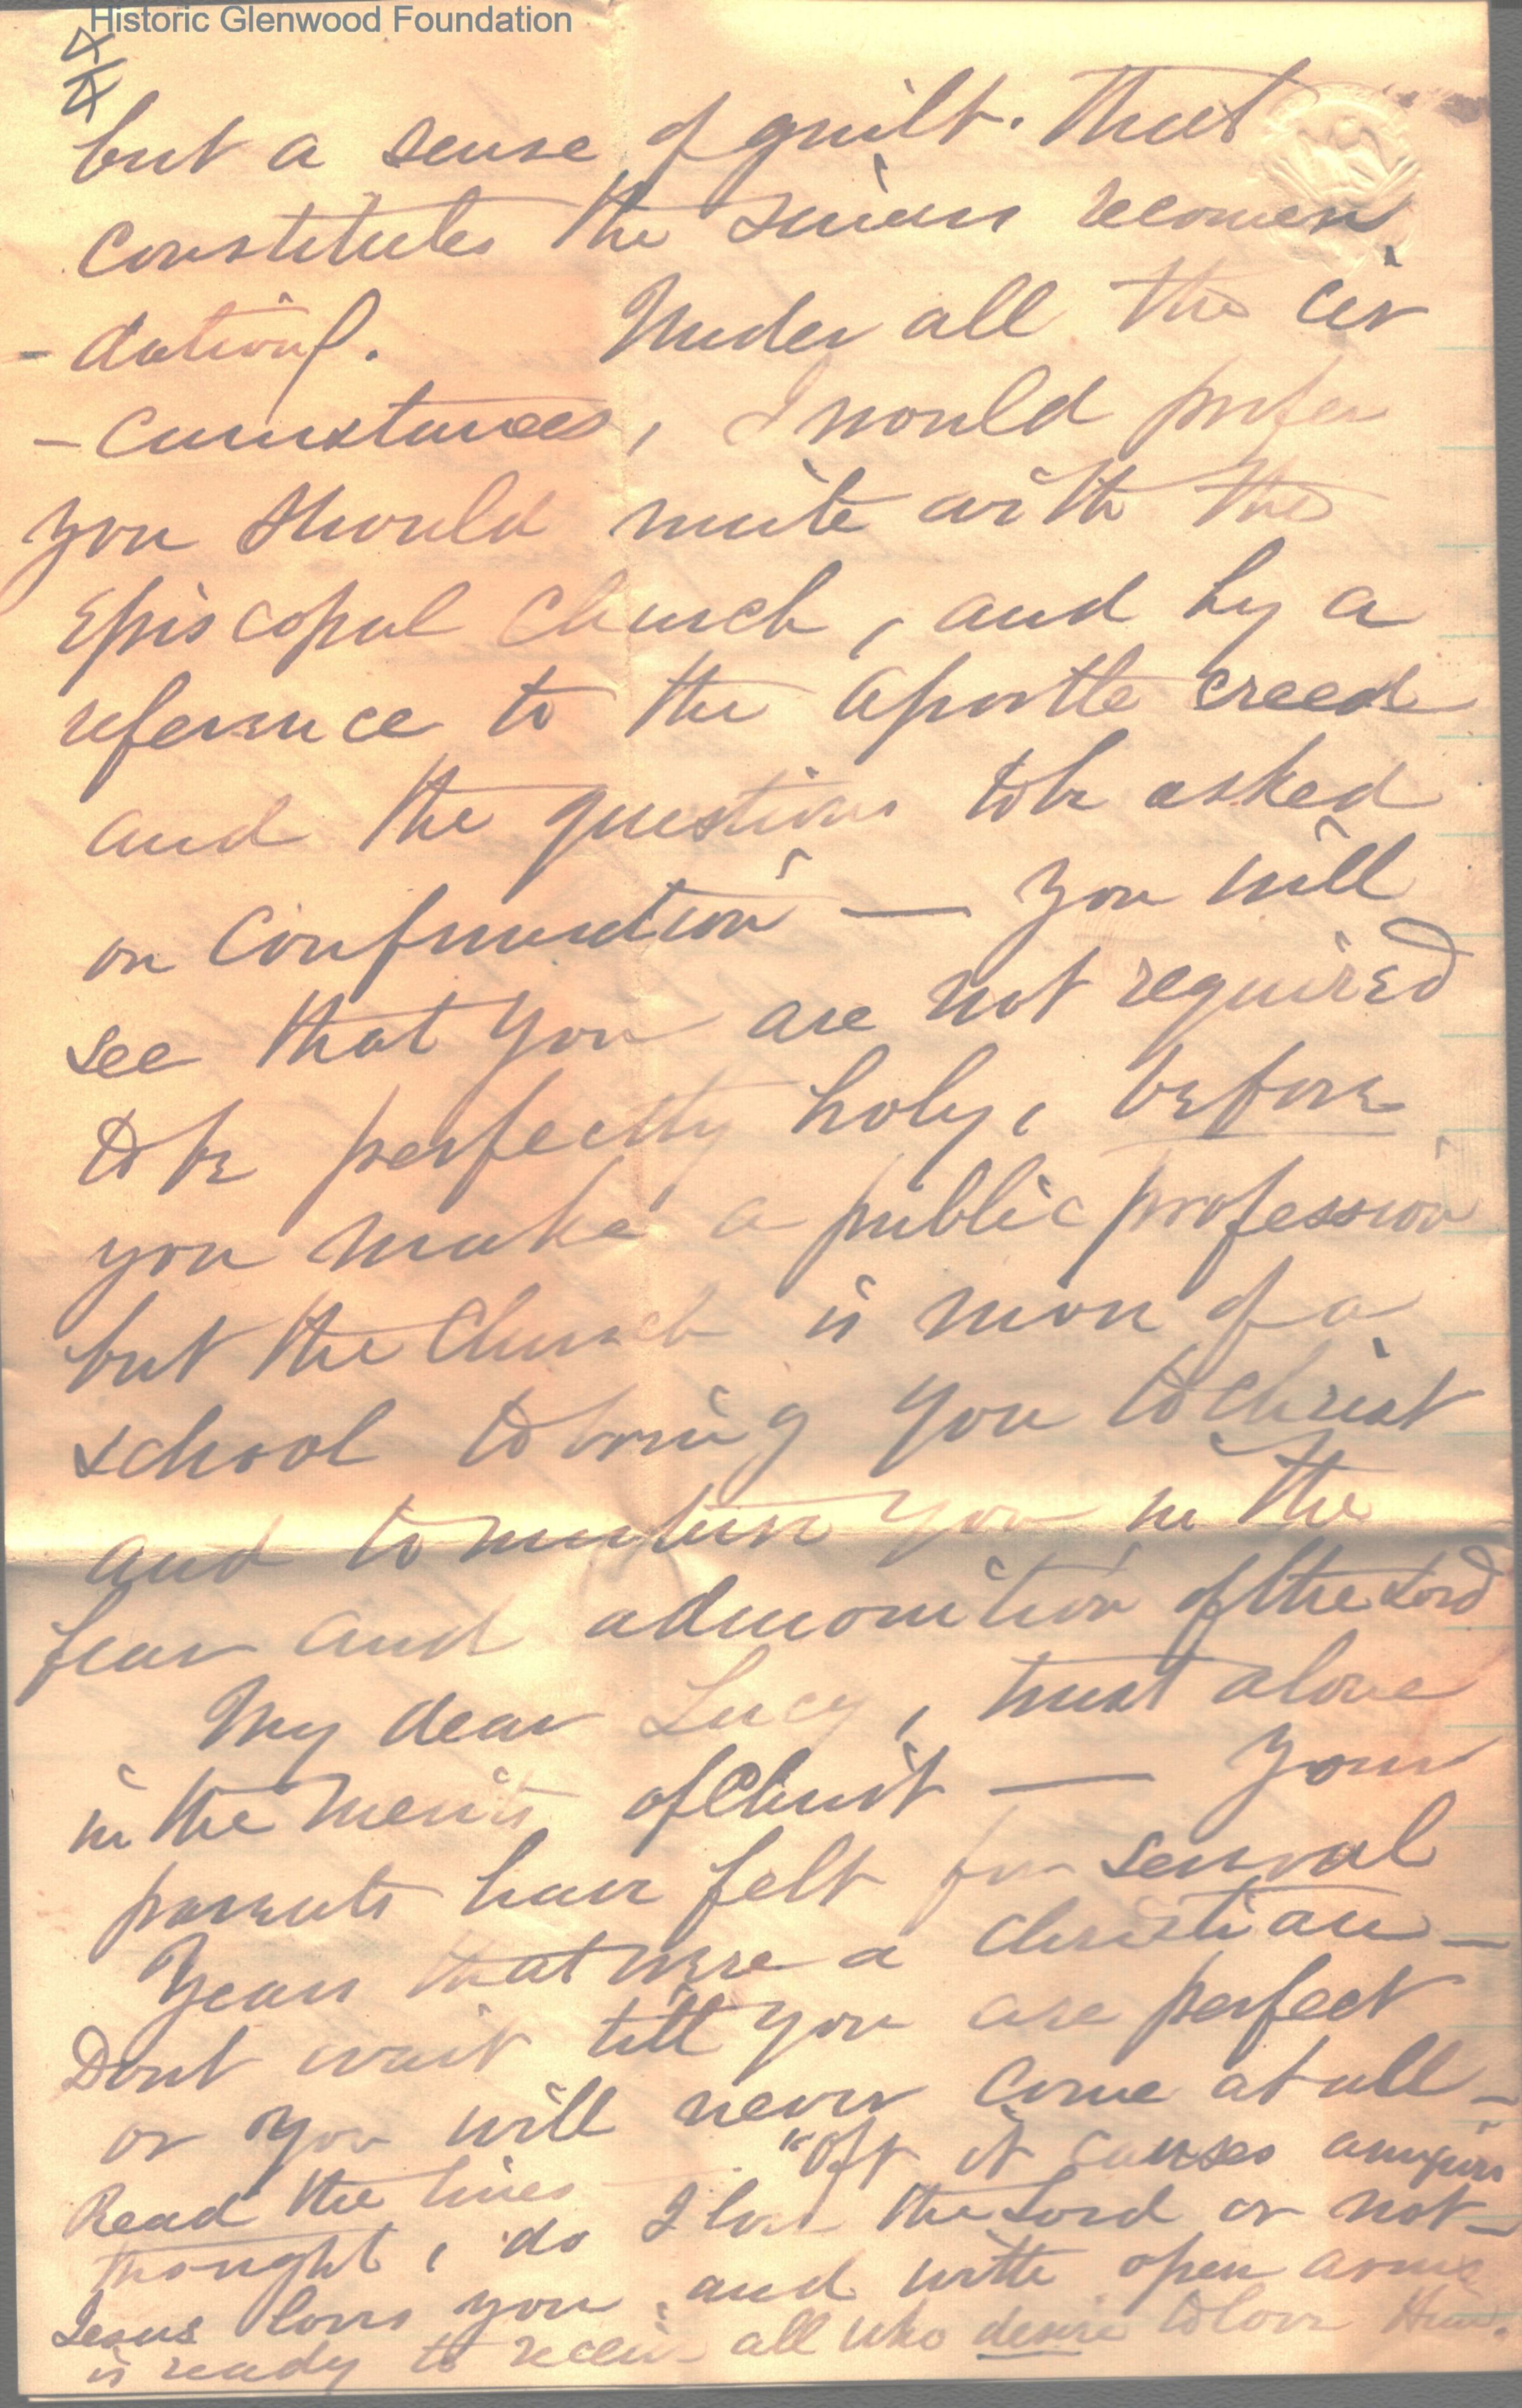 Historic Glenwood Foundation
4/4
but a sense of guilt. that
constitutes the sinners recomen
- dation.
Under all the cir
- cumstances, I would prefer
you should unite with the
Episcopal Church, and by a
reference to the apostle creed
and the questions to be asked
on Confirmation — you will
see that you are not required
to be perfectly holy, before
you make a public profession
but the Church is more of a
school to bring you to Christ
and to nurture you in the
fear and admonition of the Lord
My dear Lucy, trust alone
in the merits of Christ — Your
parents have felt for several
years that were a Christian —
Dont wait till you are perfect
or you will never come at all —
Read the lines "oft it causes anxious
thought, do I love the Lord or not —
Jesus loves you, and with open arms
is ready to receive all who desire to love Him.